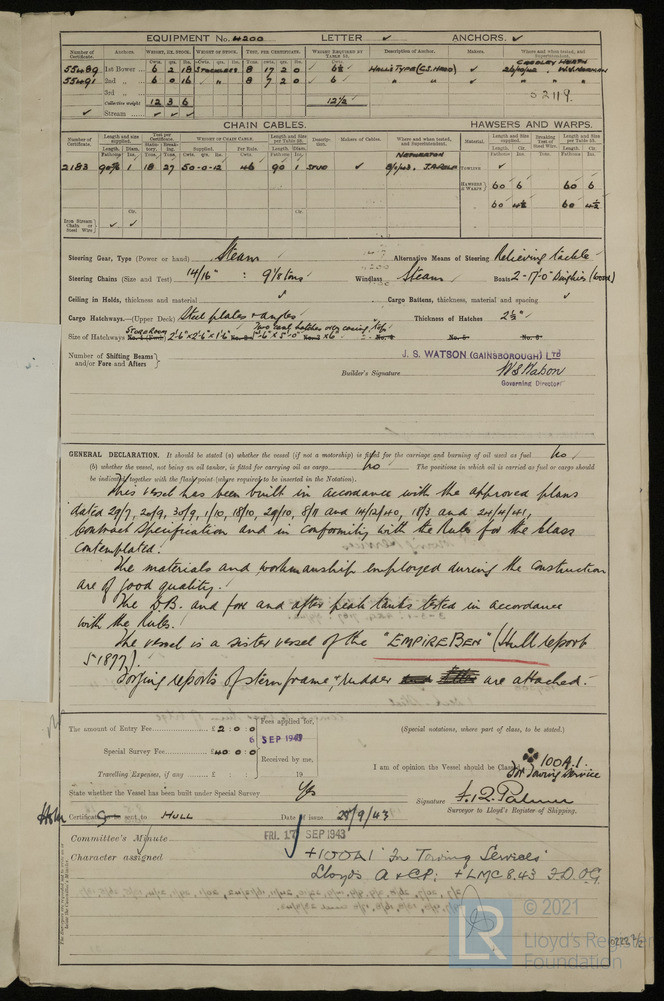 EQUIPMENT No. 4200 LETTER ✓ ANCHORS. ✓
Number of Certificate. Anchors. WEIGHT, EX. STOCK. WEIGHT OF STOCK. TEST, PER CERTIFICATE. WEIGHT REQUIRED BY TABLE 53. Description of Anchor. Makers. Where and when tested, and Superintendent.
55489 1st Bower 6 2 18 STOCKLESS 8 17 2 0 6½ HALL'S TYPE (C.S. HEAD) ✓ CRADLEY HEATH
55491 2nd " 6 0 16 " 8 7 2 0 6 " "
3rd "
Collective weight 12 3 6 12½ 52119.
✓ Stream
CHAIN CABLES. HAWSERS AND WARPS.
Number of Certificate. Length and size supplied. Test per Certificate. WEIGHT OF CHAIN CABLE. Length and size per Table 53. Description. Makers of Cables. Where and when tested, and Superintendent. Material. Length and size supplied. Breaking Test of Steel Wire. Length and size per Table 53.
NETHERTON
2183 18 27 50-0-12 46 90 1 STUD ✓ TOWLINE ✓
HAWSERS & WARPS 60 6 60 6
60 4½ 60 4½
Iron Stream Chain or Steel Wire
Steering Gear, Type (Power or hand) Steam Alternative Means of Steering Relieving tackle
Steering Chains (Size and Test) 14/16" : 9 1/8 tons Windlass Steam Boats 2-17'-0" Dinghies (wood)
Ceiling in Holds, thickness and material ✓ Cargo Battens, thickness, material and spacing ✓
Cargo Hatchways.—(Upper Deck) Steel plates & angles Thickness of Hatches 2½"
Size of Hatchways No. 1 (Fwd) 2'-6" x 2'-6" x 1'-6" No. 2 Two coal hatches over casing top No. 3 No. 4 No. 5 No. 6
Number of Shifting Beams and/or Fore and Afters
J. S. WATSON (GAINSBOROUGH) LTD
Builder's Signature W S Watson
Governing Director
GENERAL DECLARATION. It should be stated (a) whether the vessel (if not a motorship) is fitted for the carriage and burning of oil used as fuel No
(b) whether the vessel, not being an oil tanker, is fitted for carrying oil as cargo No The positions in which oil is carried as fuel or cargo should
be indicated together with the flash point (where required to be inserted in the Notation).
This vessel has been built in accordance with the approved plans
dated 29/7, 20/9, 30/9, 1/10, 18/10, 29/10, 8/11 and 14/12/40, 18/3 and 24/4/41,
Contract Specification and in conformity with the Rules for the Class
contemplated.
The materials and workmanship employed during the construction
are of good quality.
The D.B. and fore and after peak tanks tested in accordance
with the Rules.
The vessel is a sister vessel of the "EMPIRE BEN" (Hull report
51877).
Forging reports of sternframe & rudder are attached.
The amount of Entry Fee £ 2 : 0 : 0 Fees applied for, (Special notations, where part of class, to be stated.)
6 SEP 1943
Special Survey Fee £40 : 0 : 0 Received by me, I am of opinion the Vessel should be Classed ✠ 100A.1.
for Towing Service
Travelling Expenses, if any £ : : 19
State whether the Vessel has been built under Special Survey Yes
Signature F.R. Palmer
Surveyor to Lloyd's Register of Shipping.
Certificate sent to HULL Date of issue 28/9/43
Committee's Minute FRI. 17 SEP 1943
Character assigned +100A1 'For Towing Services'
Lloyds A & CP; +LMC 8.43 F.D. O.G.
LR
© 2021
Lloyd's Register
Foundation